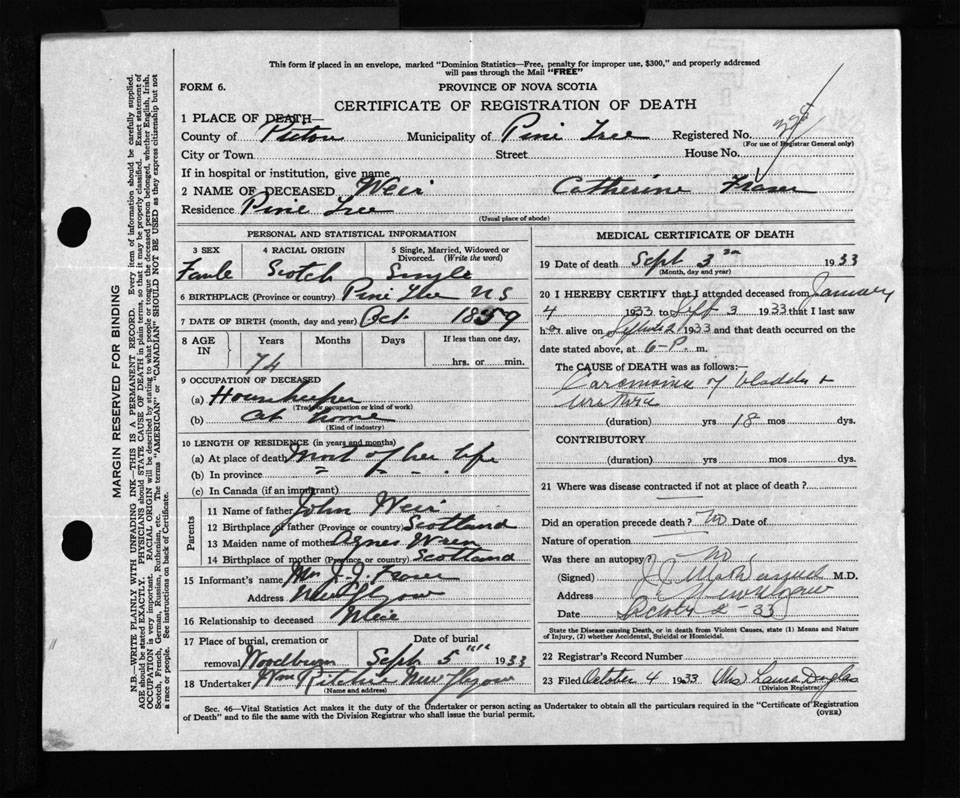 This form if placed in an envelope, marked "Dominion Statistics—Free, penalty for improper use, $300," and properly addressed
will pass through the Mail "FREE"
FORM 6. PROVINCE OF NOVA SCOTIA
CERTIFICATE OF REGISTRATION OF DEATH
1 PLACE OF DEATH—
County of Pictou Municipality of Pine Tree Registered No.
(For use of Registrar General only)
City or Town Street House No.
If in hospital or institution, give name
2 NAME OF DECEASED Weir Catherine Fraser
Residence Pine Tree
(Usual place of abode)
PERSONAL AND STATISTICAL INFORMATION
3 SEX 4 RACIAL ORIGIN 5 Single, Married, Widowed or
Divorced. (Write the word)
Scotch Single
6 BIRTHPLACE (Province or country) Pine Tree N S
7 DATE OF BIRTH (month, day and year) Oct. 1859
8 AGE IN Years Months Days If less than one day,
74 hrs. or min.
9 OCCUPATION OF DECEASED
(a) Housekeeper
(Trade, occupation or kind of work)
(b) At home
(Kind of industry)
10 LENGTH OF RESIDENCE (in years and months)
(a) At place of death Most of her life
(b) In province " " "
(c) In Canada (if an immigrant)
Parents
11 Name of father John Weir
12 Birthplace of father (Province or country) Scotland
13 Maiden name of mother Agnes
14 Birthplace of mother (Province or country) Scotland
15 Informant's name Mrs J. J. Fraser
Address New Glasgow
16 Relationship to deceased Niece
17 Place of burial, cremation or Date of burial
removal Woodburn Sept 5 "" 1933
18 Undertaker Wm Ritchie New Glasgow
(Name and address)
MEDICAL CERTIFICATE OF DEATH
19 Date of death Sept 3 1933
(Month, day and year)
20 I HEREBY CERTIFY that I attended deceased from January
4 1933 to Sept 3 1933 that I last saw
her alive on 1933 and that death occurred on
date stated above, at 6-P. m.
The CAUSE OF DEATH was as follows:—
of bladder &
urethra
(duration) yrs 18 mos dys.
CONTRIBUTORY
(duration) yrs mos dys.
21 Where was disease contracted if not at place of death?
Did an operation precede death? No Date of
Nature of operation
Was there an autopsy? No
(Signed) M.D.
Address New Glasgow
Date 2-33
State the Disease causing Death, or in death from Violent Causes, state (1) Means and Nature
of Injury, (2) whether Accidental, Suicidal or Homicidal.
22 Registrar's Record Number
23 Filed October 4 1933 (Mrs) Laura Douglas
(Division Registrar)
Sec. 46—Vital Statistics Act makes it the duty of the Undertaker or person acting as Undertaker to obtain all the particulars required in the "Certificate of Registration
of Death" and to file the same with the Division Registrar who shall issue the burial permit.
(OVER)
MARGIN RESERVED FOR BINDING
N.B.—WRITE PLAINLY WITH UNFADING INK—THIS IS A PERMANENT RECORD. Every item of information should be carefully supplied.
AGE should be stated EXACTLY. PHYSICIANS should STATE CAUSE OF DEATH in plain terms, so that it may be properly classified. Exact statement of
OCCUPATION is very important. RACIAL ORIGIN will be described by stating to what people or tongue the deceased person belonged, whether English, Irish,
Scotch, French, German, Russian, Ruthenian, etc. The terms "AMERICAN" or "CANADIAN" SHOULD NOT BE USED as they express citizenship but not
a race or people. See instructions on back of Certificate.